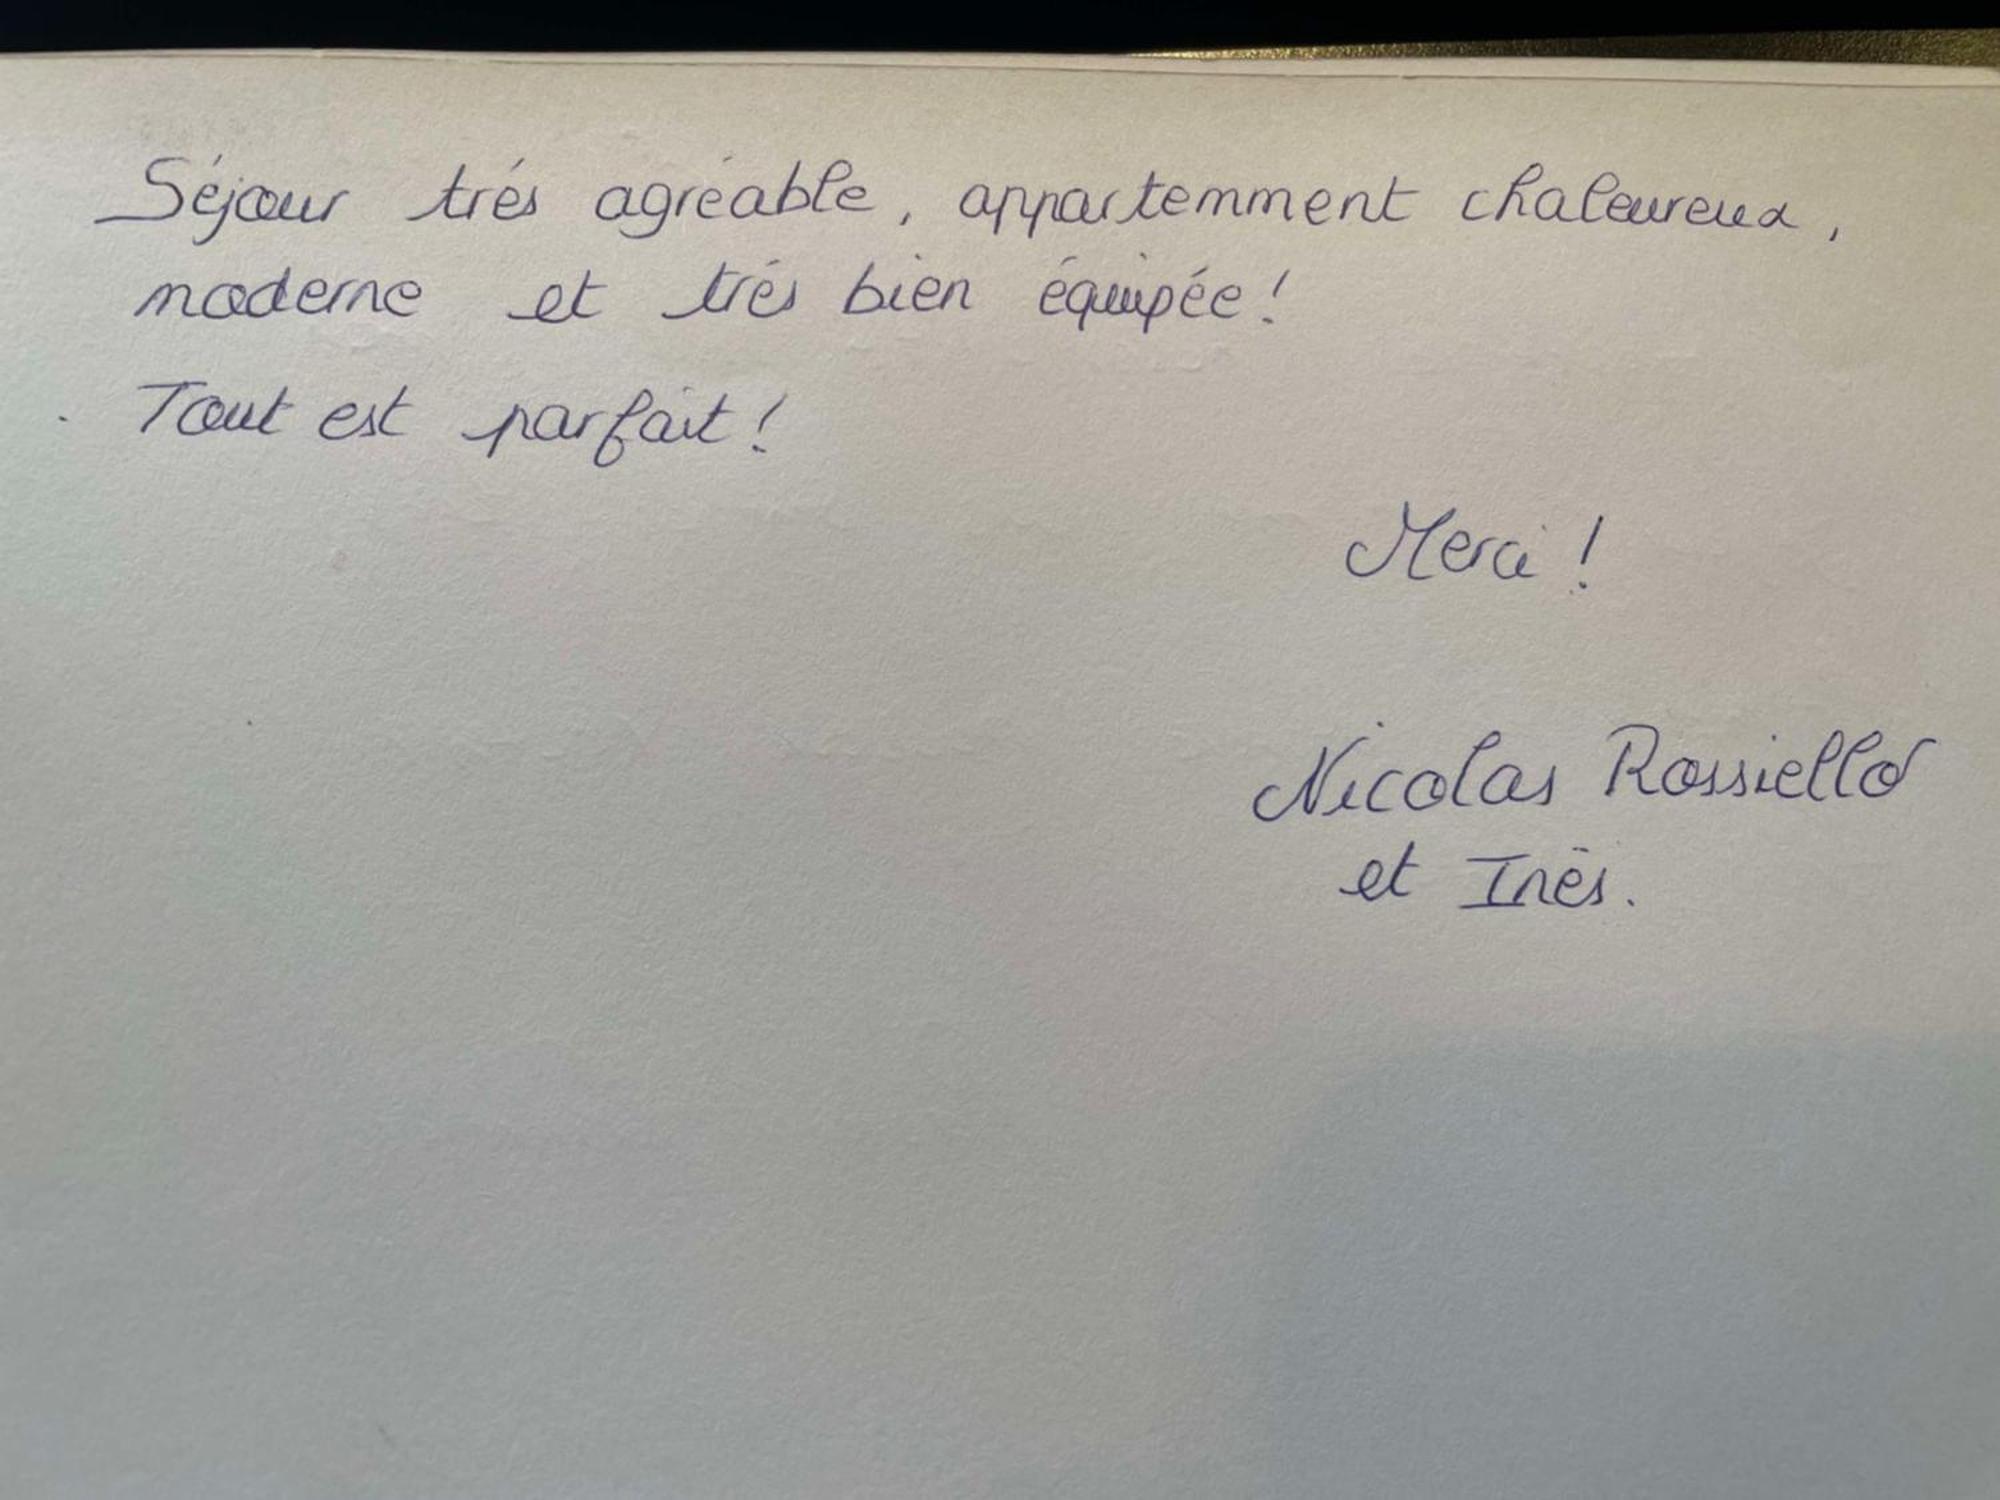 Séjour trés agréable, appartemment chaleureux,
moderne et trés bien équipée!
Tout est parfait!
Merci!
Nicolas Rossiello
et Inès.